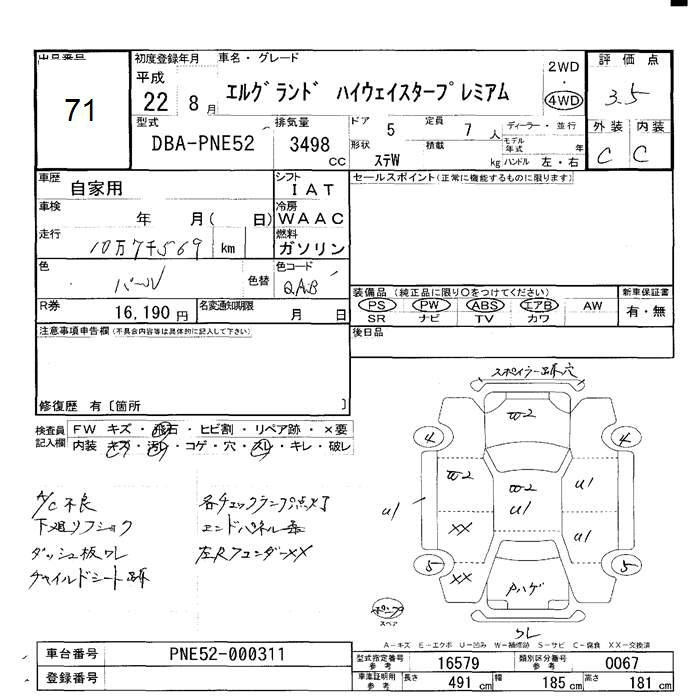 出品番号
71
初度登録年月
平成
22 8月
車名・グレード
エルグランド ハイウェイスタープレミアム
2WD
・
4WD
評価点
3.5
型式
DBA-PNE52
排気量
3498 cc
ドア 5
定員 7 人
形状 ステW
積載 kg
ディーラー・並行
モデル年式 年
ハンドル 左・右
外装 内装
C C
車歴
自家用
シフト
IAT
セールスポイント(正常に機能するものに限ります)
車検
年 月( 日)
冷房
WAAC
走行
10万7千569 km
燃料
ガソリン
色
パール
色替
色コード
QAB
装備品(純正品に限り○をつけてください)
PS PW ABS エアB AW
SR ナビ TV カワ
新車保証書
有・無
R券
16,190円
名変通知期限
月 日
後日品
注意事項申告欄(不具合内容等は具体的に記入して下さい)
修復歴 有〔箇所 〕
検査員記入欄
FW キズ・飛石・ヒビ割・リペア跡・×要
内装 キズ・汚レ・コゲ・穴・スレ・キレ・破レ
A/C不良
下廻リフショク
ダッシュ板ワレ
チャイルドシート跡
各チェックランプ点灯
エンドパネル
左Rフェンダー××
スポイラー跡穴
W2
4
4
W2
W2
U1
U1
U1
XX
U1
5
5
XX
Pハゲ
ワレ
スペア
A－キズ E－エクボ U－凹み W－補修跡 S－サビ C－腐食 XX－交換済
車台番号
PNE52-000311
登録番号
型式指定番号
参考
16579
類別区分番号
参考
0067
車庫証明用
参考
長さ 491 cm
幅 185 cm
高さ 181 cm